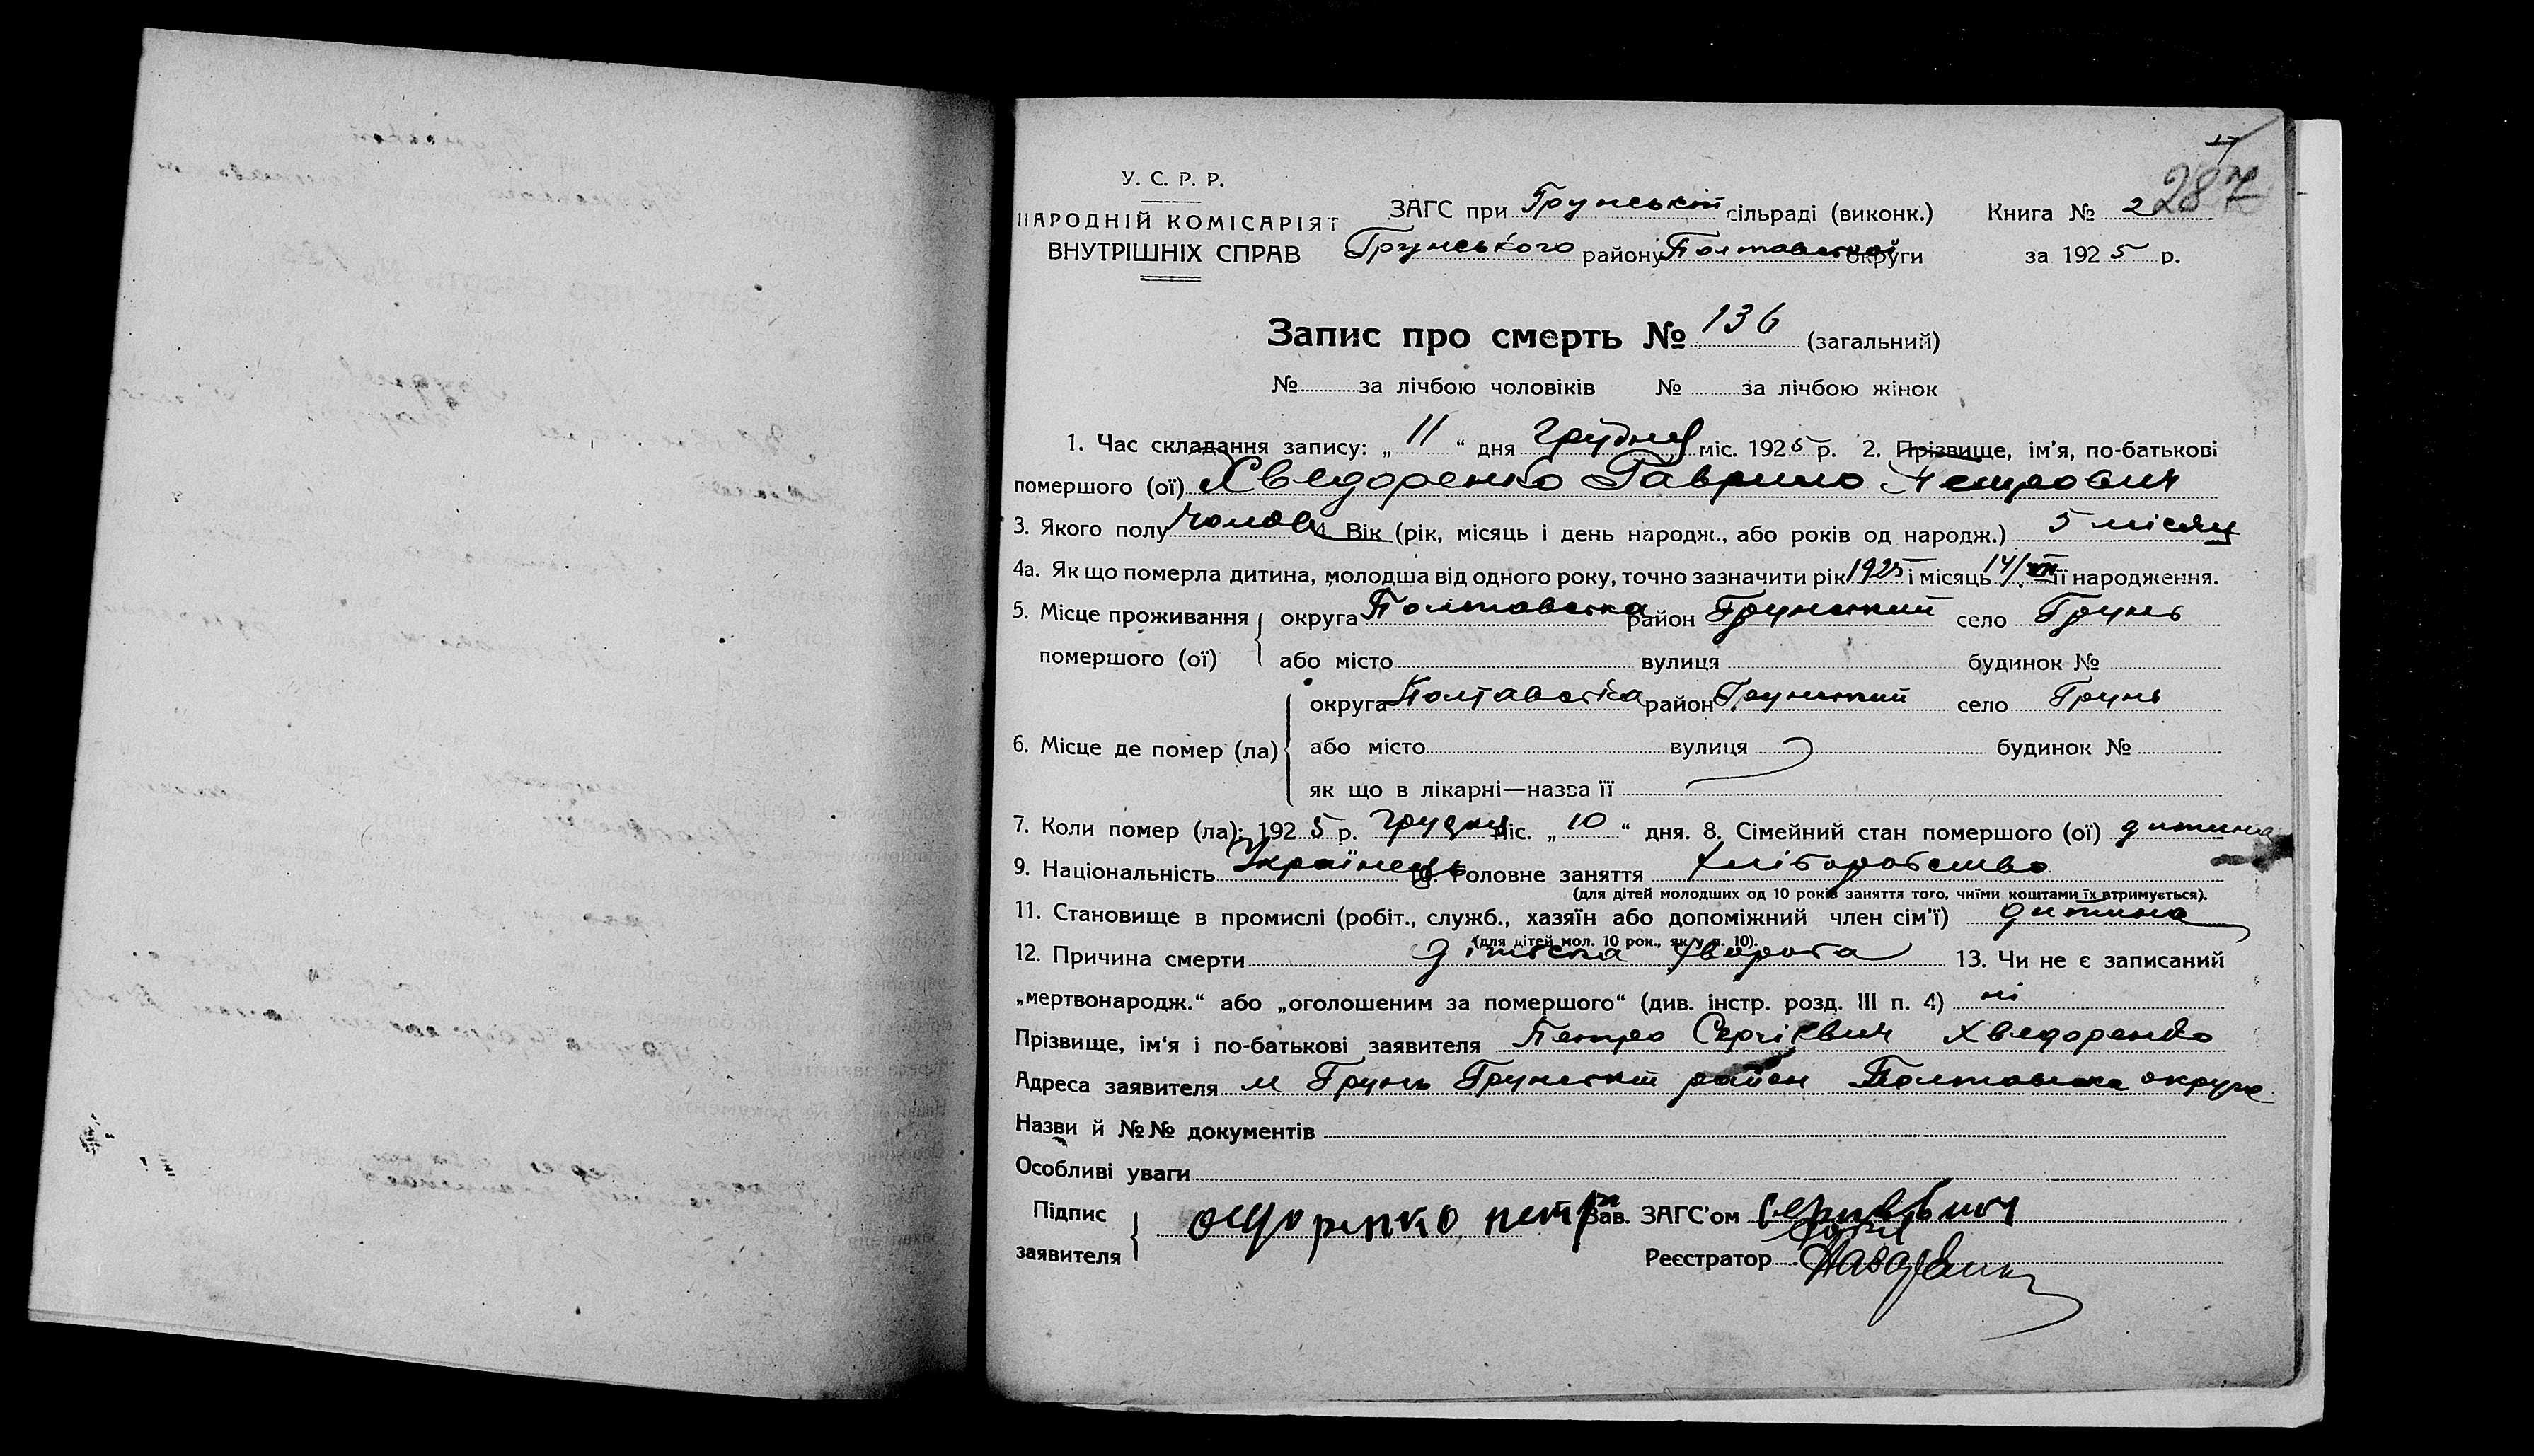 287
У. С. Р. Р.
НАРОДНІЙ КОМІСАРІЯТ
ВНУТРІШНІХ СПРАВ
ЗАГС при Грунській сільраді (виконк.) Книга № 2
Грунського району Полтавської округи за 1925 р.
Запис про смерть № 136 (загальний)
№ за лічбою чоловіків № за лічбою жінок
1. Час складання запису: „ 11 “ дня Грудня міс. 1925 р. 2. Прізвище, ім’я, по-батькові
помершого (ої) Хведоренко Гаврило Петрович
3. Якого полу чолов 4. Вік (рік, місяць і день народж., або років од народж.) 5 місяц
4а. Як що померла дитина, молодша від одного року, точно зазначити рік 1925 і місяць 14/VII її народження.
5. Місце проживання округа Полтавська район Грунський село Грунь
помершого (ої) або місто вулиця будинок №
округа Полтавська район Грунський село Грунь
6. Місце де помер (ла) або місто вулиця будинок №
як що в лікарні—назва її
7. Коли помер (ла): 1925 р. грудня міс. „ 10 “ дня. 8. Сімейний стан помершого (ої) дитина
9. Національність Українець 10. Головне заняття хліборобство
(для дітей молодших од 10 років заняття того, чиїми коштами їх втримується).
11. Становище в промислі (робіт., служб., хазяїн або допоміжний член сім’ї) дитина
(для дітей мол. 10 рок., як у п. 10).
12. Причина смерти дітська хвороба 13. Чи не є записаний
„мертвонародж.“ або „оголошеним за помершого“ (див. інстр. розд. III п. 4) ні
Прізвище, ім‘я і по-батькові заявителя Петро Сергієвич Хведоренко
Адреса заявителя м Грунь Грунський район Полтавська округа
Назви й №№ документів
Особливі уваги
Підпис
заявителя
Зав. ЗАГС’ом
Реєстратор